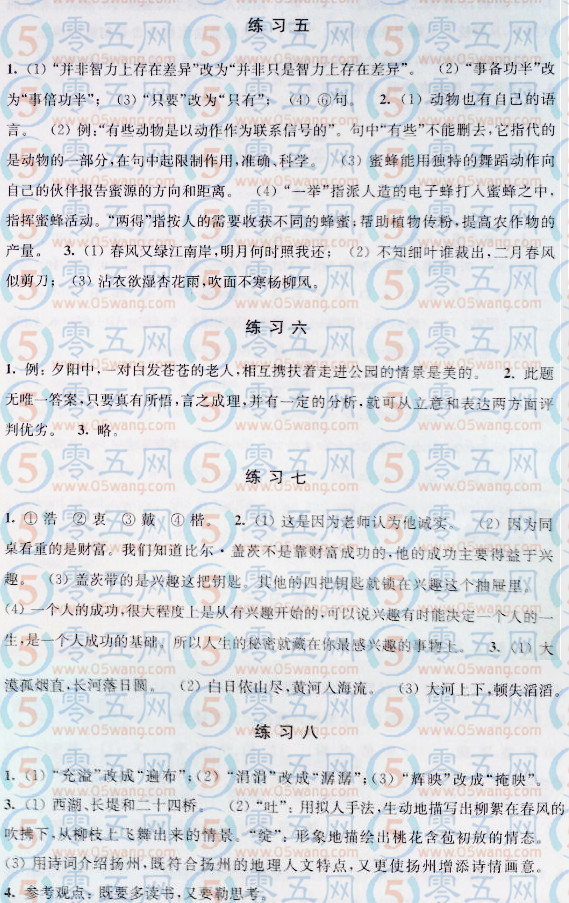 练习五
1. (1) “并非智力上存在差异”改为“并非只是智力上存在差异”。 (2) “事备功半”改
为“事倍功半”; (3) “只要”改为“只有”; (4) ⑥句。 2. (1) 动物也有自己的语
言。 (2) 例:“有些动物是以动作作为联系信号的”。句中“有些”不能删去,它指代的
是动物的一部分,在句中起限制作用,准确、科学。 (3) 蜜蜂能用独特的舞蹈动作向
自己的伙伴报告蜜源的方向和距离。 (4) “一举”指派人造的电子蜂打入蜜蜂之中,
指挥蜜蜂活动。“两得”指按人的需要收获不同的蜂蜜;帮助植物传粉,提高农作物的
产量。 3. (1) 春风又绿江南岸,明月何时照我还; (2) 不知细叶谁裁出,二月春风
似剪刀; (3) 沾衣欲湿杏花雨,吹面不寒杨柳风。
练习六
1. 例:夕阳中,一对白发苍苍的老人,相互携扶着走进公园的情景是美的。 2. 此题
无唯一答案,只要真有所悟,言之成理,并有一定的分析,就可从立意和表达两方面评
判优劣。 3. 略。
练习七
1. ①浩 ②衷 ③戴 ④楷。 2. (1) 这是因为老师认为他诚实。 (2) 因为同
桌看重的是财富。我们知道比尔·盖茨不是靠财富成功的,他的成功主要得益于兴
趣。 (3) 盖茨带的是兴趣这把钥匙。其他的四把钥匙就锁在兴趣这个抽屉里。
(4) 一个人的成功,很大程度上是从有兴趣开始的,可以说兴趣有时能决定一个人的一
生,是一个人成功的基础。所以人生的秘密就藏在你最感兴趣的事物上。 3. (1) 大
漠孤烟直,长河落日圆。 (2) 白日依山尽,黄河入海流。 (3) 大河上下,顿失滔滔。
练习八
1. (1) “充溢”改成“遍布”;(2) “涓涓”改成“潺潺”;(3) “辉映”改成“掩映”。
3. (1) 西湖、长堤和二十四桥。 (2) “吐”:用拟人手法,生动地描写出柳絮在春风的
吹拂下,从柳枝上飞舞出来的情景。“绽”:形象地描绘出桃花含苞初放的情态。
(3) 用诗词介绍扬州,既符合扬州的地理人文特点,又更使扬州增添诗情画意。
4. 参考观点:既要多读书,又要勤思考。
零五网
www.05wang.com